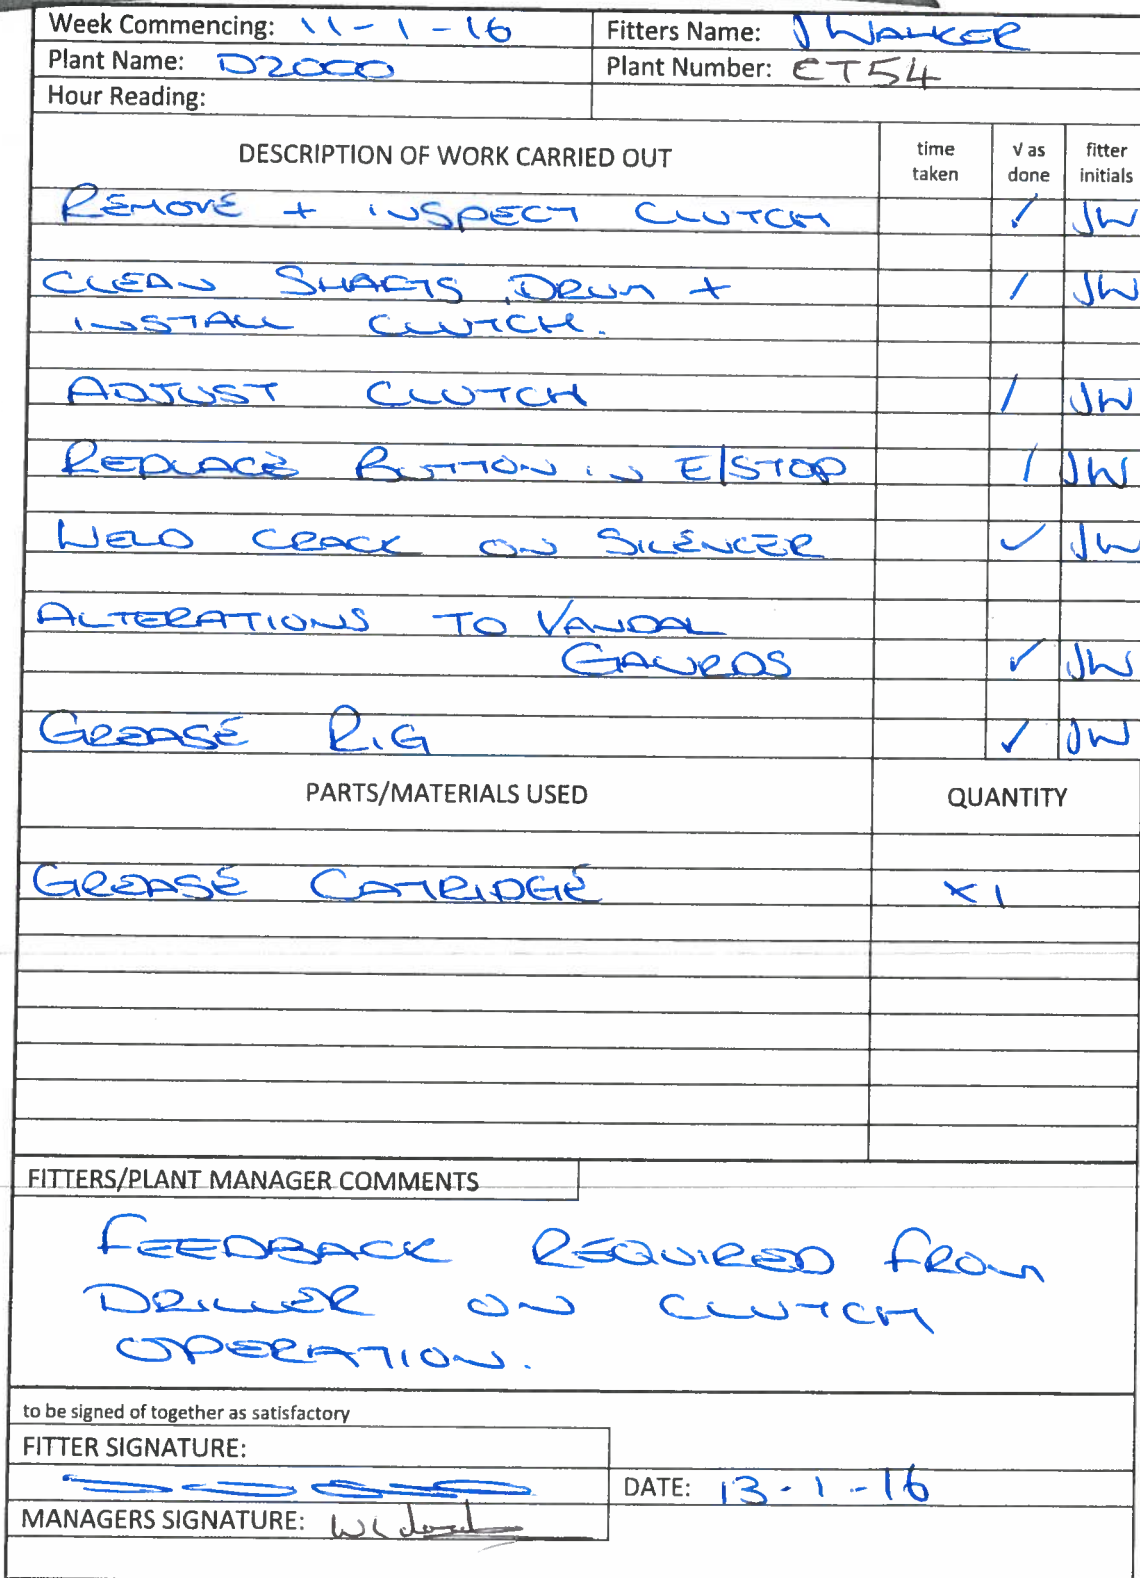 Week Commencing: 11-1-16 Fitters Name: J WALKER
Plant Name: D2000 Plant Number: ET54
Hour Reading:
DESCRIPTION OF WORK CARRIED OUT time taken √ as done fitter initials
REMOVE + INSPECT CLUTCH / JW
CLEAN SHAFTS, DRUM + / JW
INSTALL CLUTCH.
ADJUST CLUTCH / JW
REPLACE BUTTON IN E/STOP / JW
WELD CRACK ON SILENCER ✓ JW
ALTERATIONS TO VANDAL
GAURDS ✓ JW
GREASE RIG ✓ JW
PARTS/MATERIALS USED QUANTITY
GREASE CATRIDGE x1
FITTERS/PLANT MANAGER COMMENTS
FEEDBACK REQUIRED FROM
DRILLER ON CLUTCH
OPERATION.
to be signed of together as satisfactory
FITTER SIGNATURE:
DATE: 13-1-16
MANAGERS SIGNATURE: